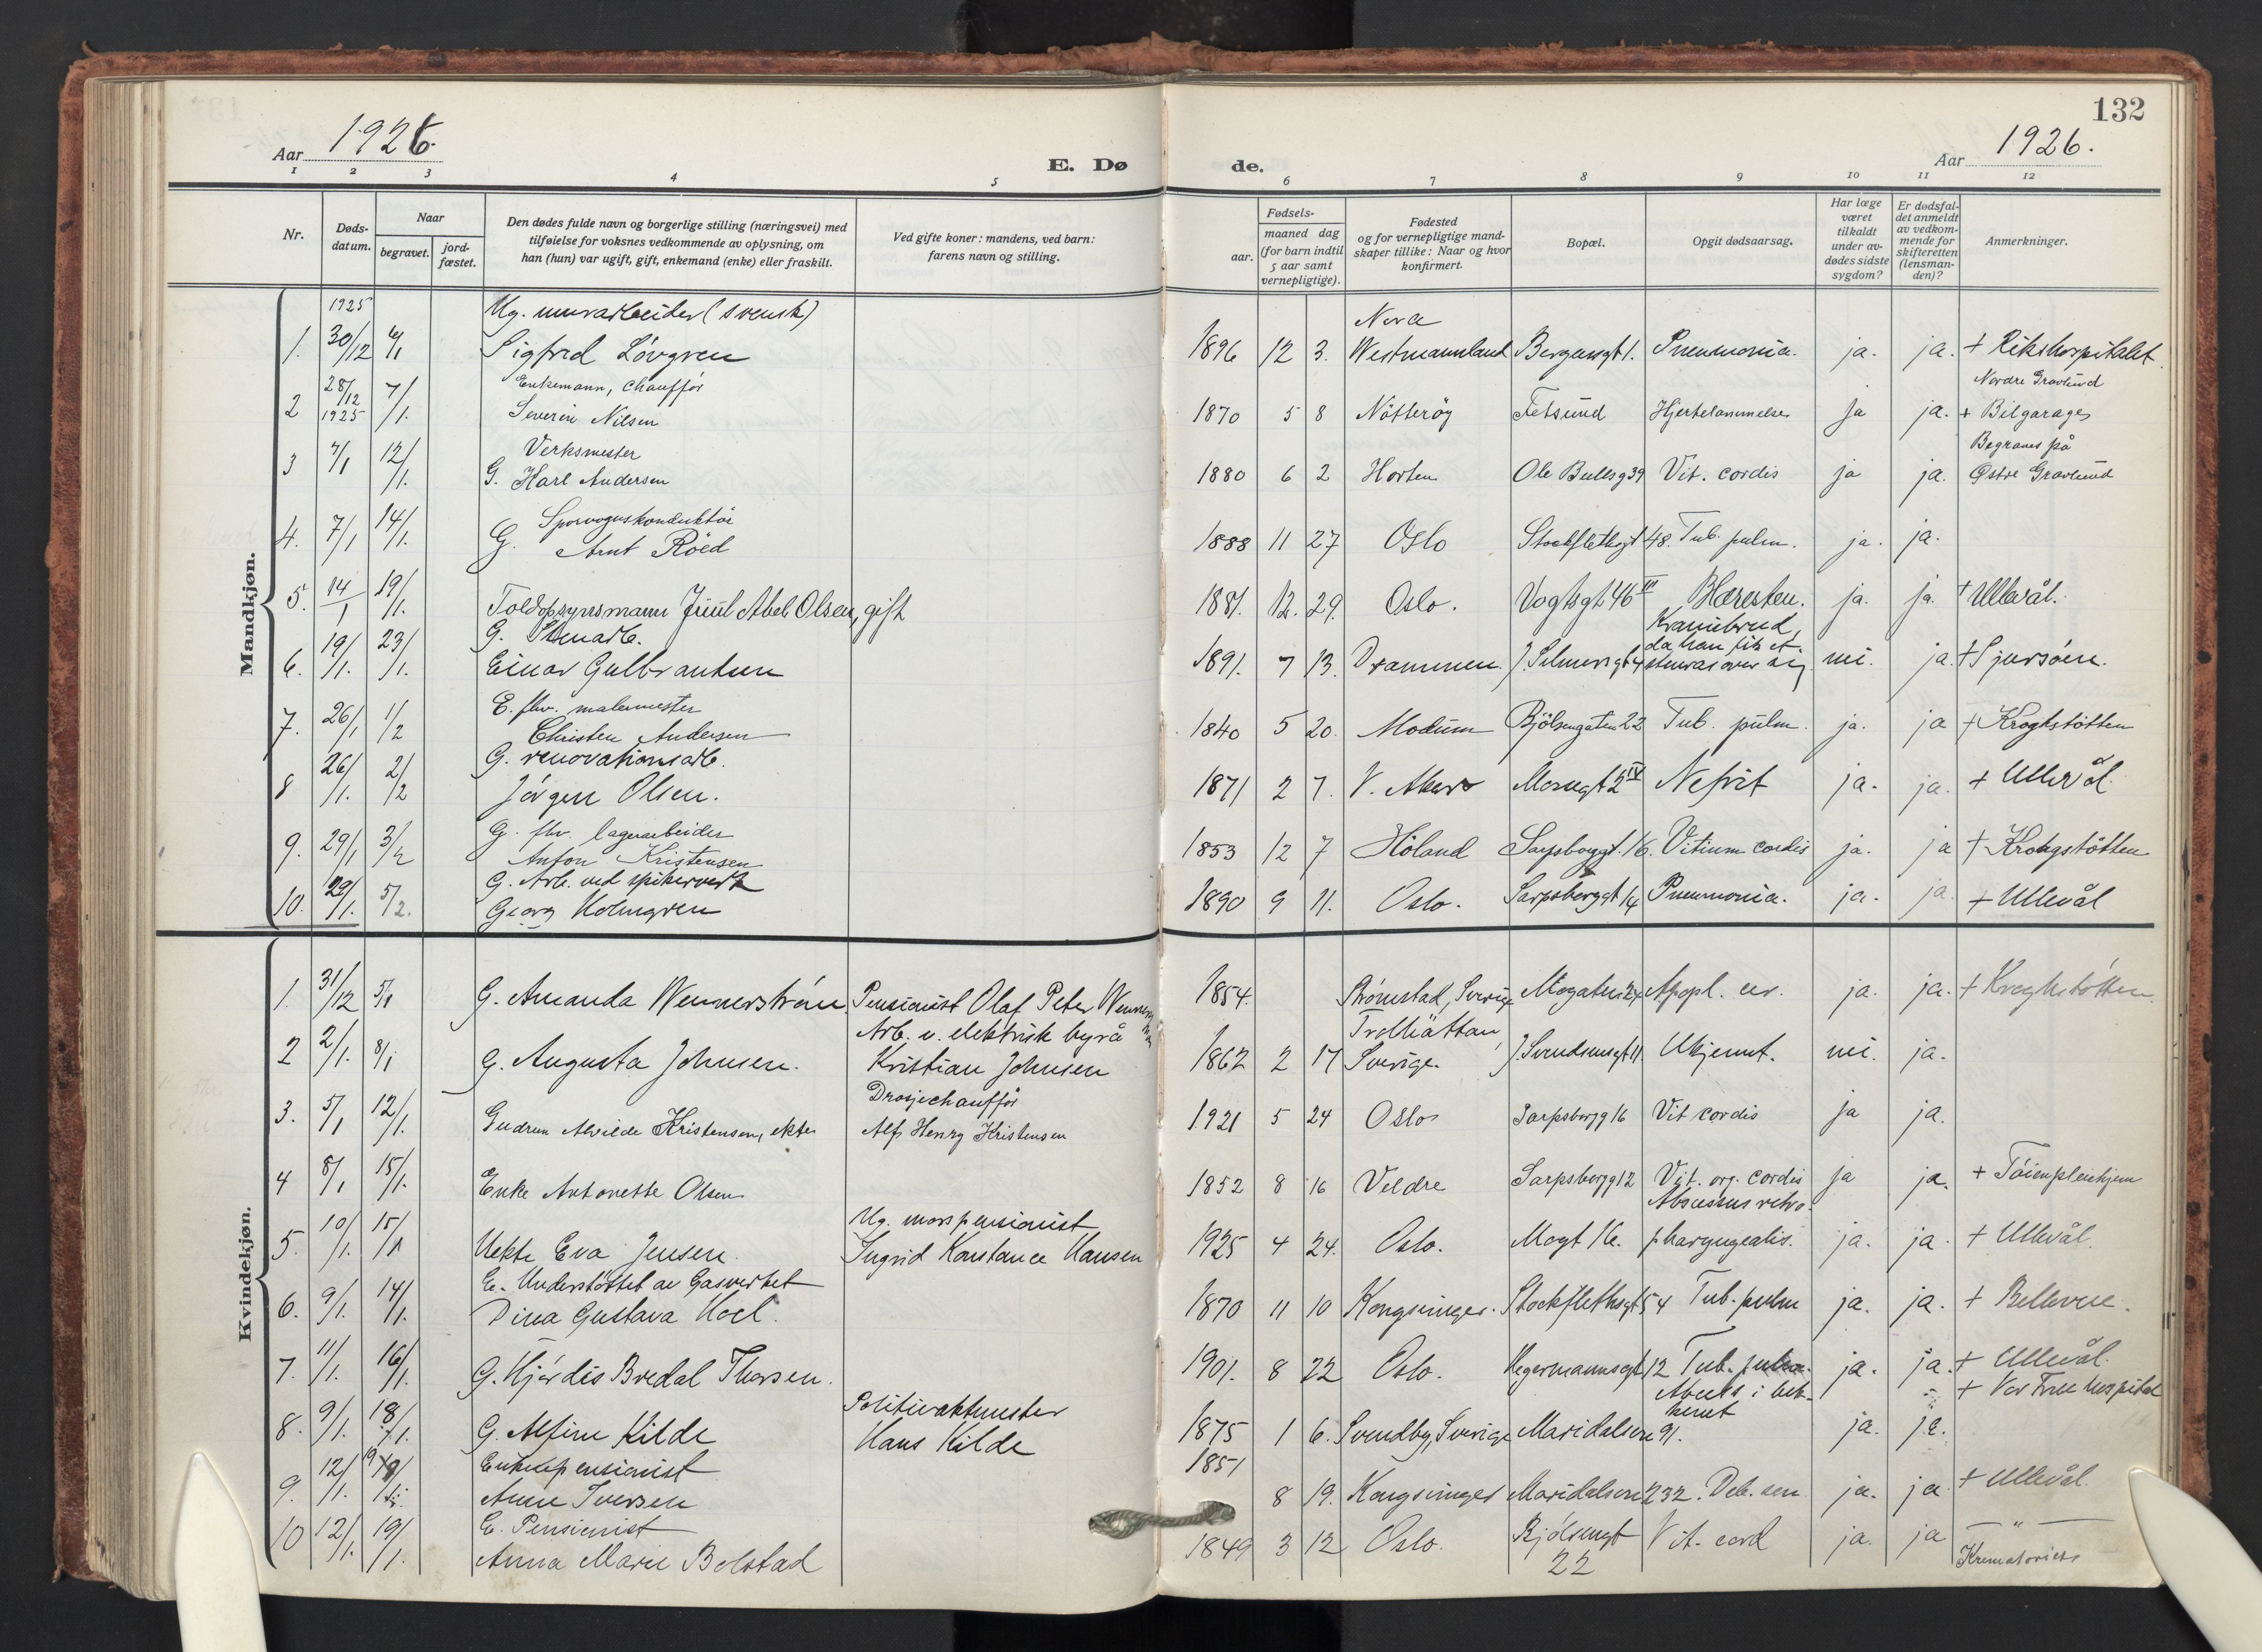 132
Aar 1926.
E. Dø de.
Aar 1926.
1 2 3 4 5 6 7 8 9 10 11 12
Nr.
Døds-
datum.
Naar
begravet.
jord-
fæstet.
Den dødes fulde navn og borgerlige stilling (næringsvei) med
tilføielse for voksnes vedkommende av oplysning, om
han (hun) var ugift, gift, enkemand (enke) eller fraskilt.
Ved gifte koner: mandens, ved barn:
farens navn og stilling.
Fødsels-
aar.
maaned dag
(for barn indtil
5 aar samt
vernepligtige).
Fødested
og for vernepligtige mand-
skaper tillike: Naar og hvor
konfirmert.
Bopæl.
Opgit dødsaarsag.
Har læge
været
tilkaldt
under av-
dødes sidste
sygdom?
Er dødsfal-
det anmeldt
av vedkom-
mende for
skifteretten
(lensman-
den)?
Anmerkninger.
Mandkjøn.
1925 Ug. murarbeider (svensk) Nora
1. 30/12 6/1 Sigfred Lövgren 1896 12 3. Westmannland Bergensgt 1. Pneumonia. ja. ja. + Rikshospitalet.
28/12 Enkemann, Chauffør Nordre Gravlund
2 1925 7/1. Severin Nilsen 1870 5 8 Nötteröy Fetsund Hjertelammelse Ja ja. + Bilgarage
Verksmester Begraves på
3 7/1 12/1. G. Karl Andersen 1880 6 2 Horten Ole Bullsg 39 Vit. cordis ja ja. Østre Gravlund
Sporvognskonduktör
4. 7/1 14/1. G. Arnt Röed 1888 11 27 Oslo Stockflethsgt 48. Tub. pulm. ja. ja.
5. 14/1 19/1. Toldopsynsmann Juul Abel Olsen, gift 1881. 12. 29. Oslo. Vogtsgt 46 III Blæresten. ja. ja. + Ullevål.
G. Stenarb. Kraniebrud,
da han fik et
6. 19/1. 23/1. Einar Gulbrandsen 1891. 7 13. Drammen. J. Selmersgt 4 stenras over sig nei. ja. + Sjursöen.
E. fhv. malermester
7. 26/1 1/2 Christen Andersen 1840 5 20. Modum Bjölsengaten 22 Tub. pulm. ja. ja + Kroghstötten
G. renovationsarb.
8 26/1. 2/2 Jörgen Olsen. 1871 2 7. V. Aker Mosegt 2 IV Nefrit ja. ja. + Ullevål.
G. fhv. lagerarbeider
9. 29/1 3/2 Anton Kristensen 1853 12 7 Höland Sarpsborggt. 16. Vitium cordis ja. ja + Kroghstötten
G. Arb. ved spikerverk
10. 29/1. 5/2. Georg Holmgren 1890 9 11. Oslo. Sarpsborggt 14 Pneumonia. ja. ja. + Ullevål
Kvindekjøn.
1. 31/12 5/1 G. Amanda Wennerström Pensionist Olaf Peter 1854. Strömstad, Sverige Mogaten 24 Apopl. cer. ja. ja. + Kroghstötten.
Arb. v. elektrisk byrå Trollhättan,
2 2/1. 8/1 G. Augusta Johnsen. Kristian Johnsen 1862 2 17 Sverige. J. Svendsensgt 11. Ukjennt. nei. ja.
Drosjechauffør
3. 5/1 12/1. Gudrun Alvilde Kristensen, ekte Alf Henry Kristensen 1921 5 24 Oslo Sarpsborgg 16 Vit cordis ja ja.
4 8/1 15/1. Enke Antonette Olsen 1852 8 16 Veldre Sarpsborgg 12 Vit. org. cordis ja ja. + Töienpleiehjem
Ug. morspensionist Abscessus retro-
5. 10/1. 15/1 Uekte Eva Jensen. Ingrid Konstance Hansen 1925 4 24. Oslo. Mogt 16. pharyngealis. ja. ja. + Ullevål.
E. Understöttet av Gasverket
6. 9/1. 14/1. Dina Gustava Hoel. 1870 11 10 Kongsvinger. Stockflethsgt 54 Tub. pulm ja. ja. + Bellevue.
7. 11/1. 16/1. G. Hjördis Bredal Thorsen. 1901. 8 22 Oslo. Hegermannsgt 12 Tub. pulm. ja. ja. + Ullevål.
Politivaktmester i bek- + Vor Frue hospital
kenet
8. 9/1. 18/1. G. Alfine Kilde Hans Kilde 1875 1 6. Svendby, Sverige Maridalsvn 91. ja. ja.
Enkepensionist 1851
9. 12/1. Anne Iversen 8 19. Kongsvinger Maridalsvn 232. Deb. sen. ja. ja. + Ullevål.
E. Pensionist
10 12/1. 19/1. Anna Marie Bolstad 1849 3 12 Oslo. Bjölsengt Vit. cord ja. ja — " —
22 Krematoriet